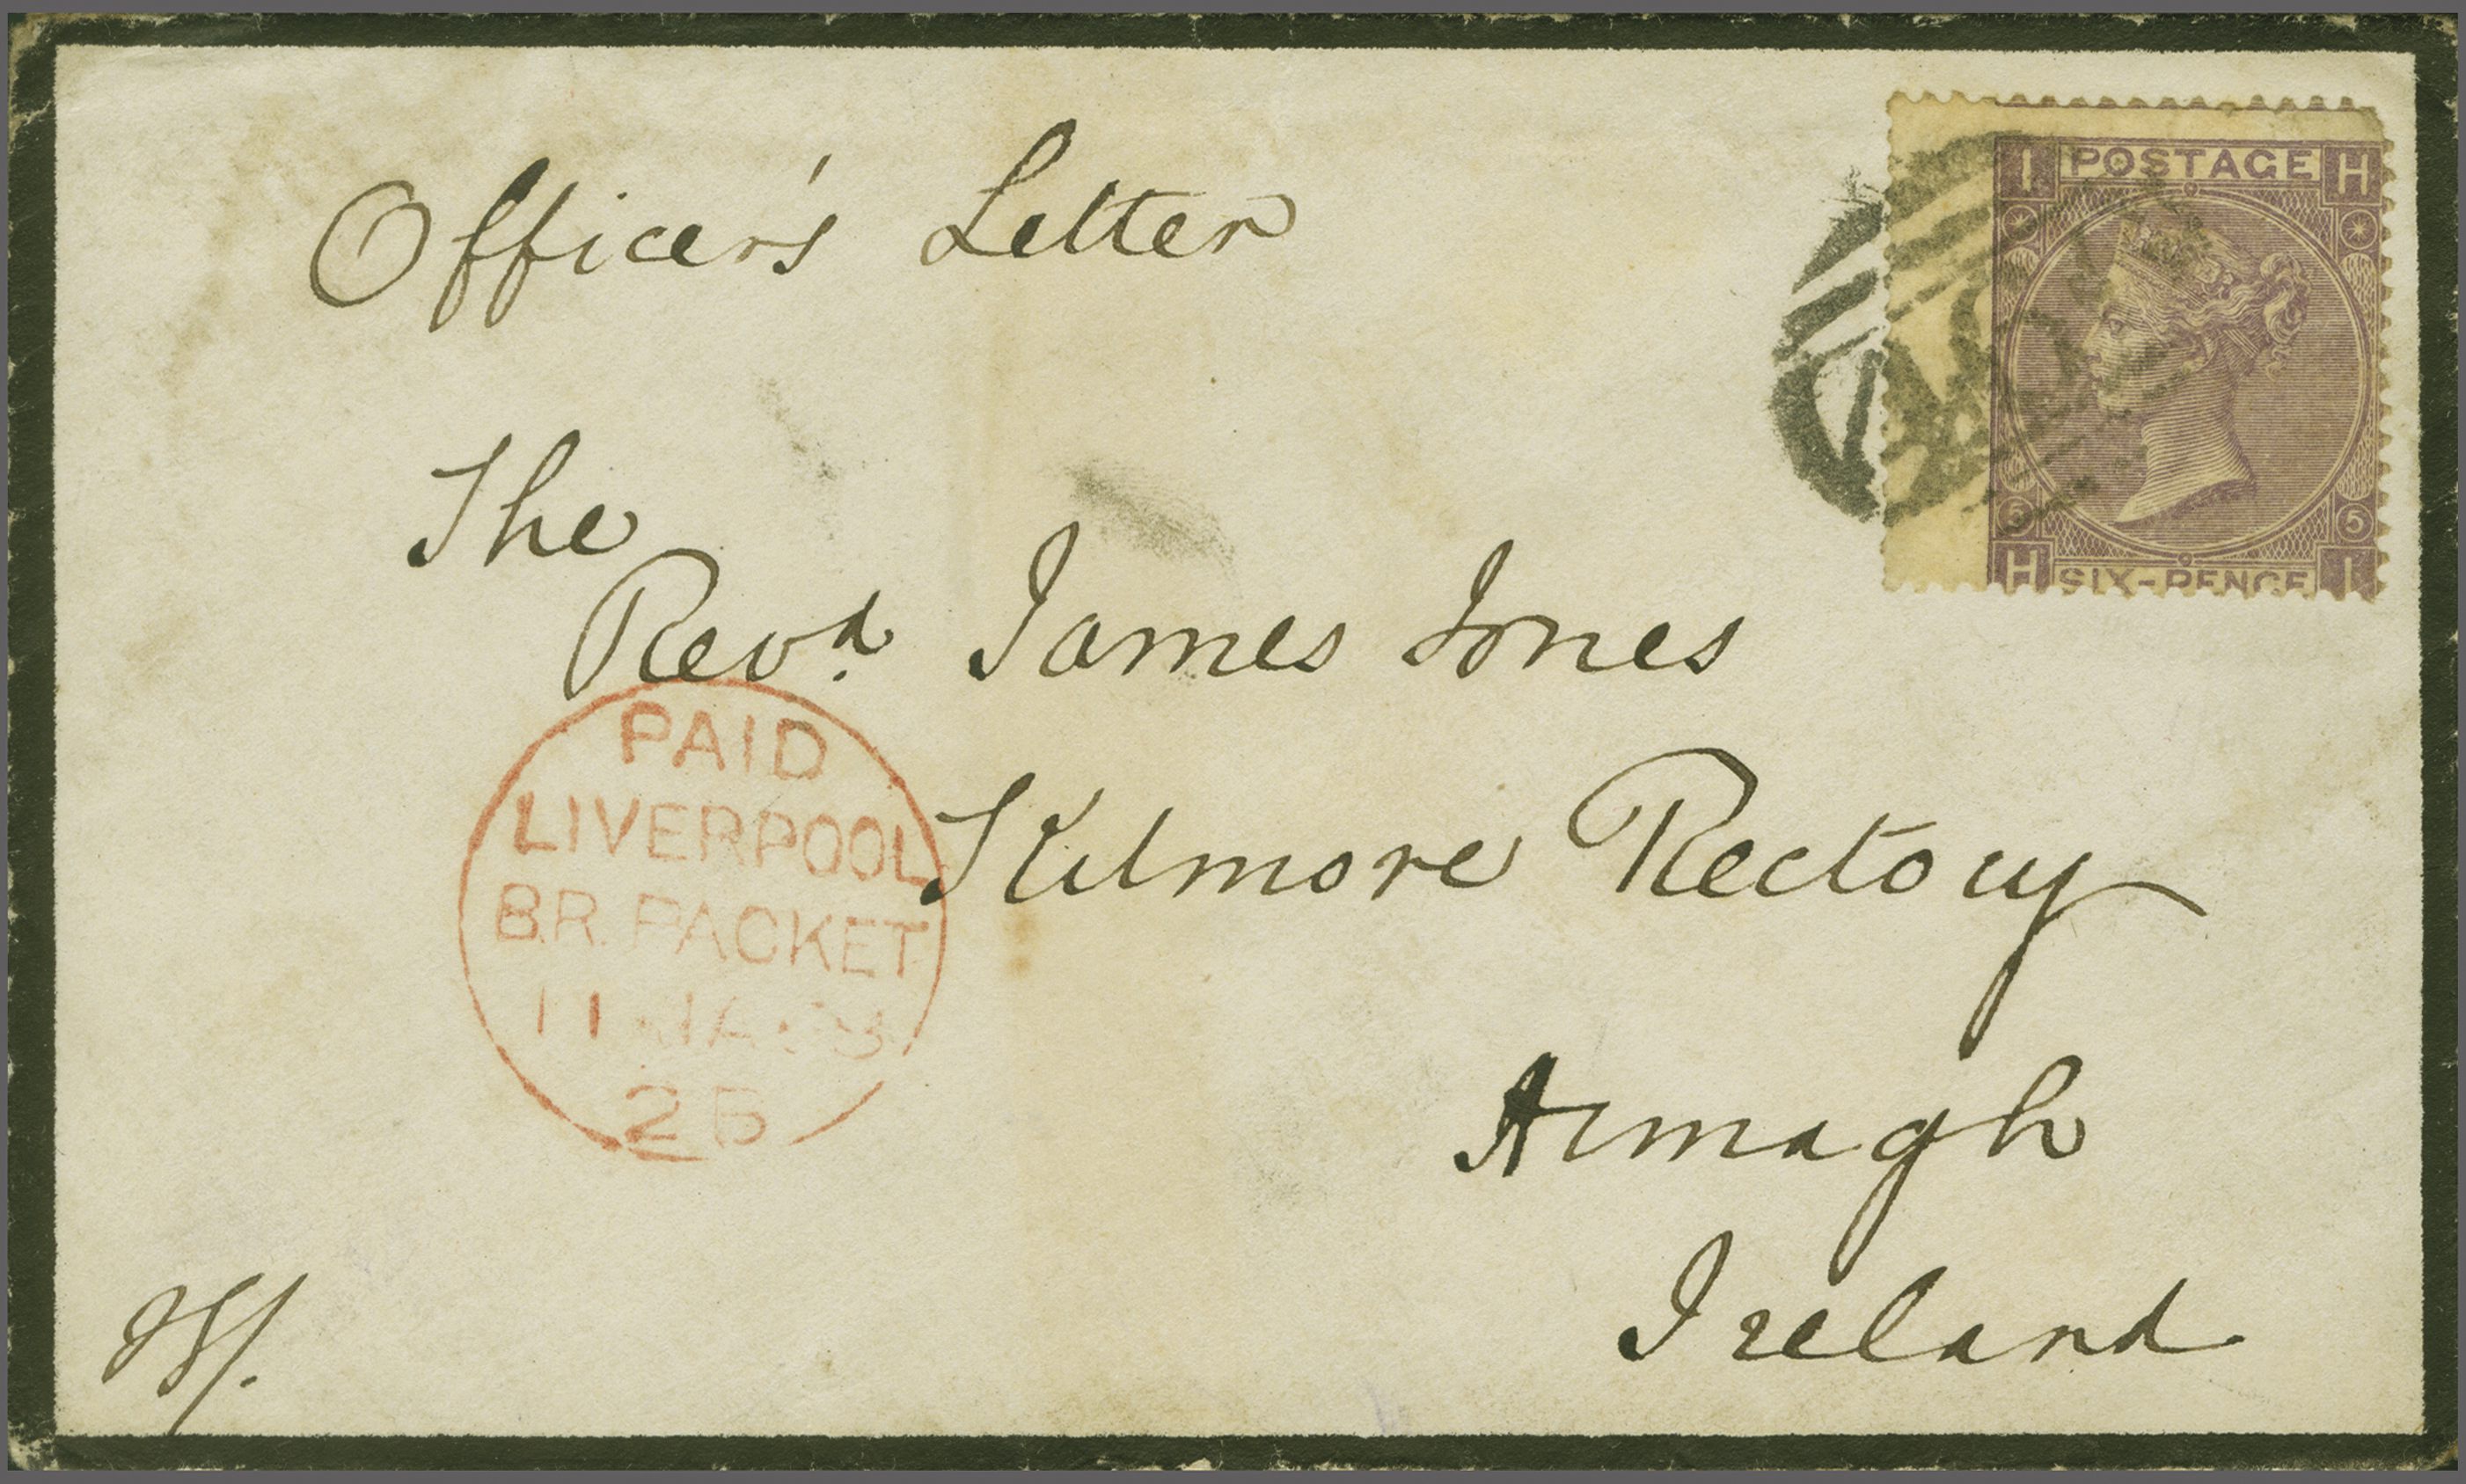 Officer's Letter
I POSTAGE H
5 5
H SIX-PENCE I
The
Revd. James Jones
Kilmore Rectory
Armagh
Ireland
PAID
LIVERPOOL
B.R. PACKET
11 JA
2B